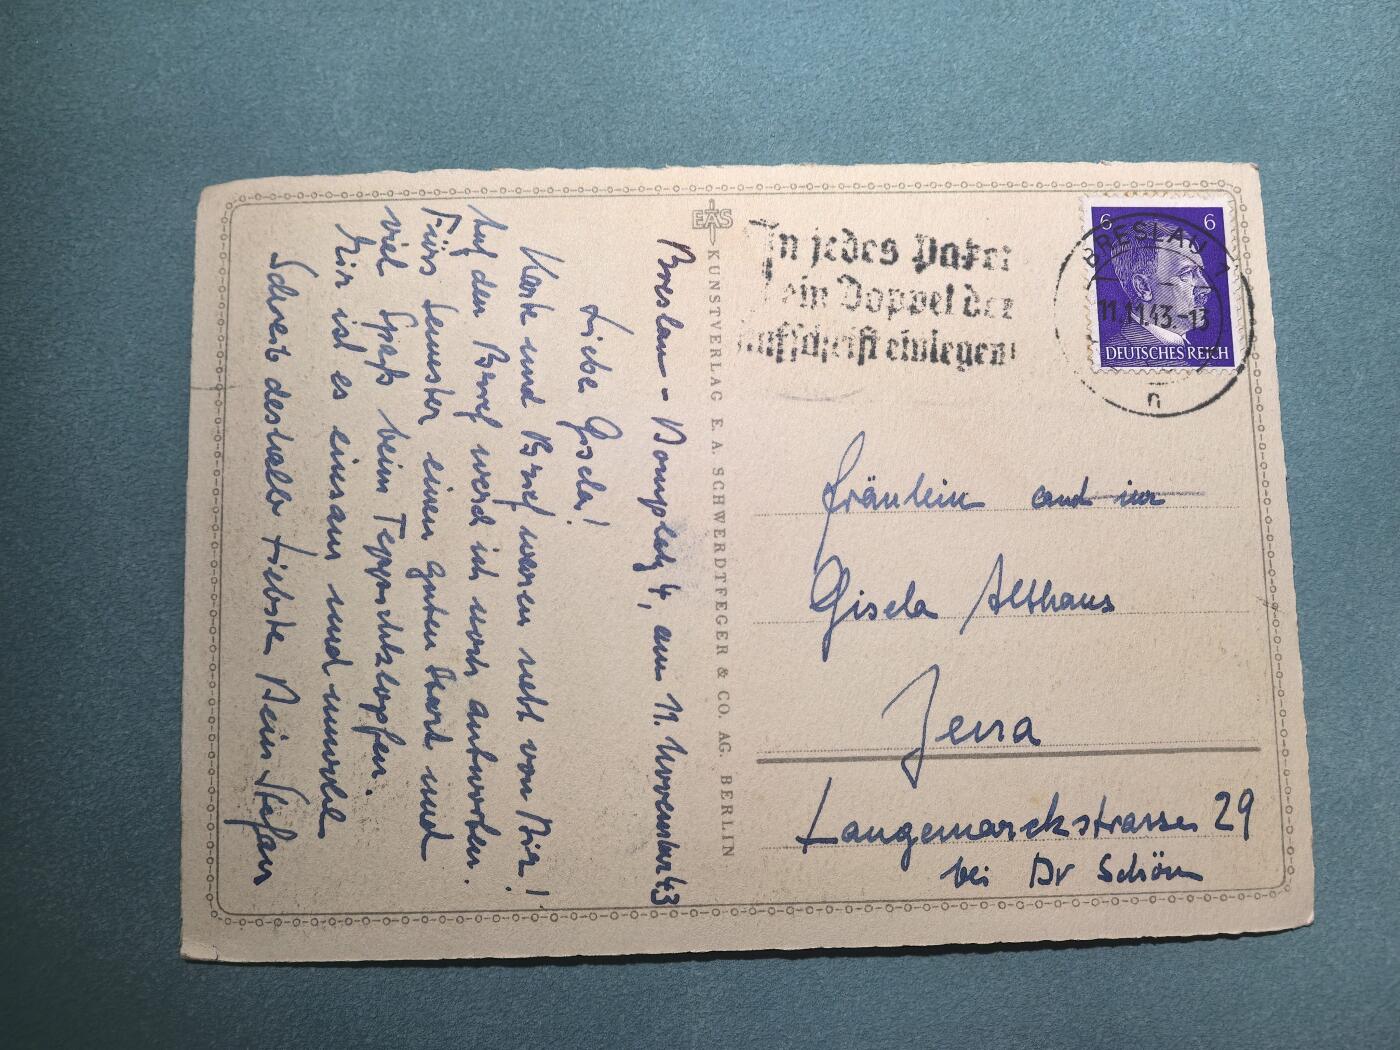 Breslau - Domplatz 4, am 11. November 43
Liebe Gisela!
Karte und Brief waren nett von Dir!
Auf den Brief werd ich noch antworten.
Fürs Semester einen guten Start und
viel Spaß beim Teppichklopfen.
Mir ist es einsam und
Schreib deshalb Liebste Dein Stefan
EAS
KUNSTVERLAG E. A. SCHWERDTFEGER & CO. AG. BERLIN
In jedes Paket
ein Doppel der
Aufschrift einlegen!
BRESLAU
11.11.43.-13
n
6 6
DEUTSCHES REICH
Fräulein cand
Gisela Althaus
Jena
Langemarckstrasse 29
bei Dr Schön